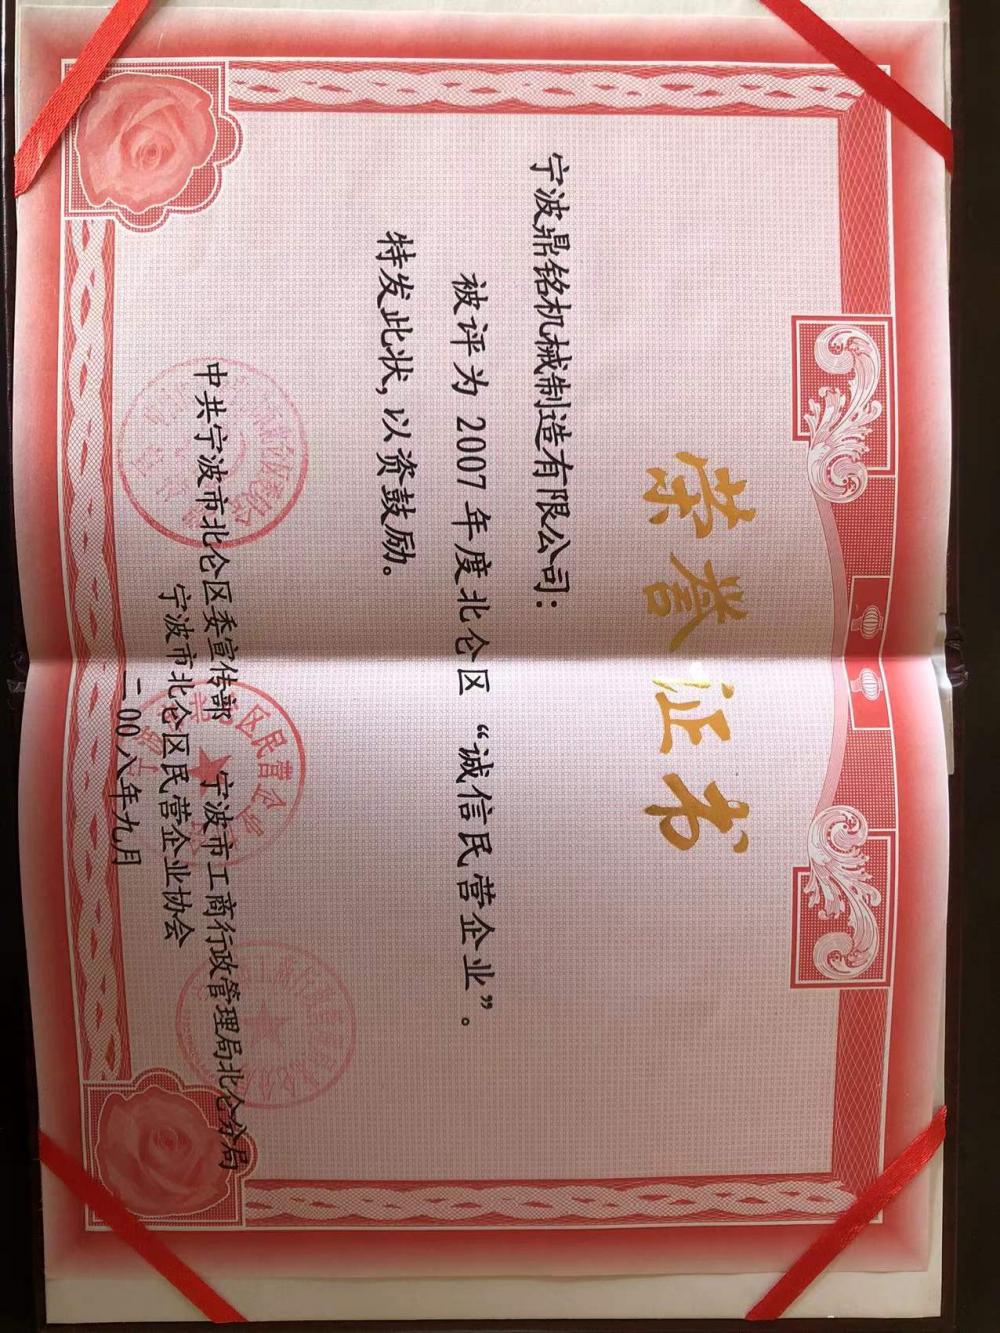 荣誉证书
宁波鼎铭机械制造有限公司：
被评为2007年度北仑区“诚信民营企业”。
特发此状，以资鼓励。
中共宁波市北仑区委宣传部 宁波市工商行政管理局北仑分局
宁波市北仑区民营企业协会
二00八年九月